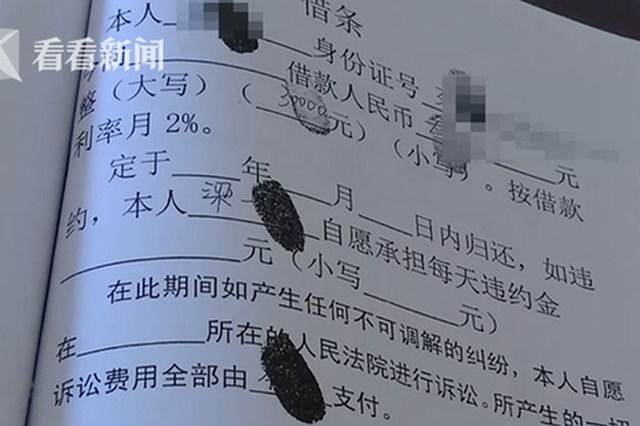 看看新闻
借条
本人 身份证号
借款人民币 元
整(大写)( 30000 元)(小写)。按借款
利率月2%。
定于 年 月 日内归还,如违
约,本人 自愿承担每天违约金
元(小写 元)
在此期间如产生任何不可调解的纠纷,本人自愿
在 所在的人民法院进行诉讼。所产生的一切
诉讼费用全部由 支付。